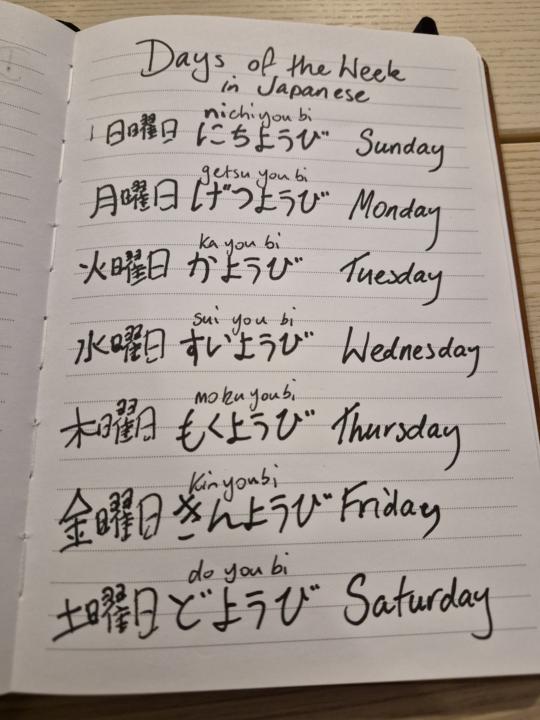 Days of the Week
in Japanese
nichi you bi
日曜日 にちようび Sunday
getsu you bi
月曜日 げつようび Monday
ka you bi
火曜日 かようび Tuesday
sui you bi
水曜日 すいようび Wednesday
moku you bi
木曜日 もくようび Thursday
kin you bi
金曜日 きんようび Friday
do you bi
土曜日 どようび Saturday